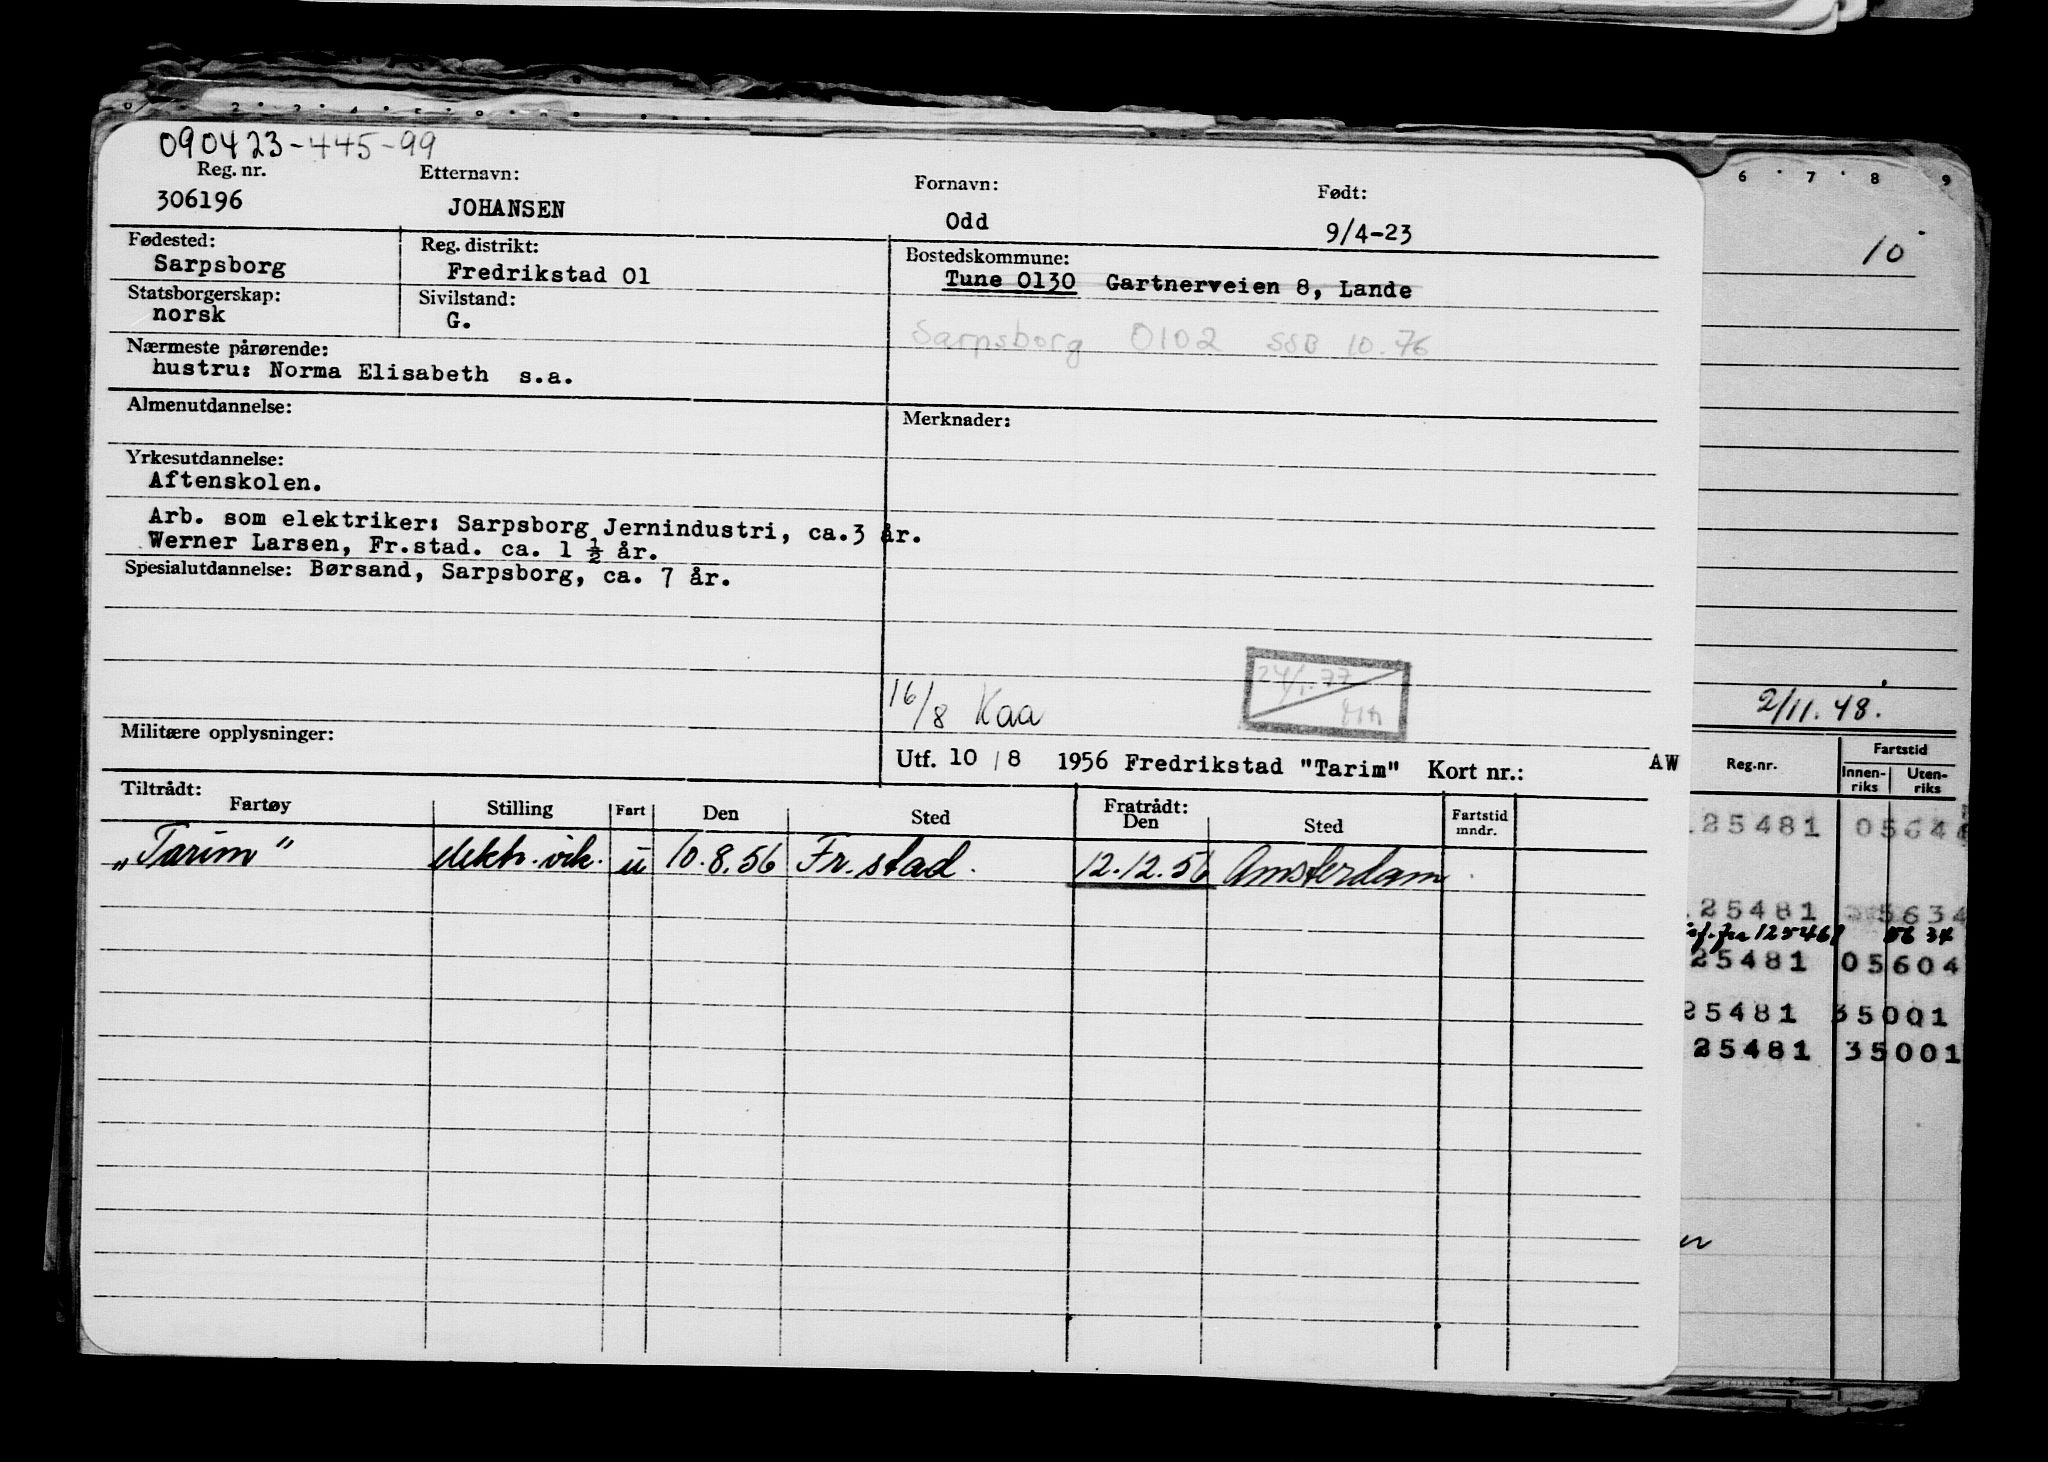 090423-445-99
Reg. nr. Etternavn: Fornavn: Født:
306196 JOHANSEN Odd 9/4-23
Fødested: Reg. distrikt: Bostedskommune:
Sarpsborg Fredrikstad 01 Tune 0130 Gartnerveien 8, Lande
Statsborgerskap: Sivilstand:
norsk G.
Sarpsborg 0102 SSB 10.76
Nærmeste pårørende:
hustru: Norma Elisabeth s.a.
Almenutdannelse: Merknader:
Yrkesutdannelse:
Aftenskolen.
Arb. som elektriker: Sarpsborg Jernindustri, ca.3 år.
Werner Larsen, Fr.stad. ca. 1 ½ år.
Spesialutdannelse: Børsand, Sarpsborg, ca. 7 år.
16/8 Kaa
24/1.77
Militære opplysninger:
Utf. 10 / 8 1956 Fredrikstad "Tarim" Kort nr.: AW
Tiltrådt: Fratrådt:
Fartøy Stilling Fart Den Sted Den Sted Fartstid mndr.
„Tarim" elektr. vik. u 10.8.56 Fr.stad. 12.12.56 Amsterdam
6 7 8 9
10
2/11.48.
Reg.nr. Fartstid
Innen-riks Uten-riks
25481 0564
25481 5634
125461 56 34
25481 05604
25481 35001
25481 35001